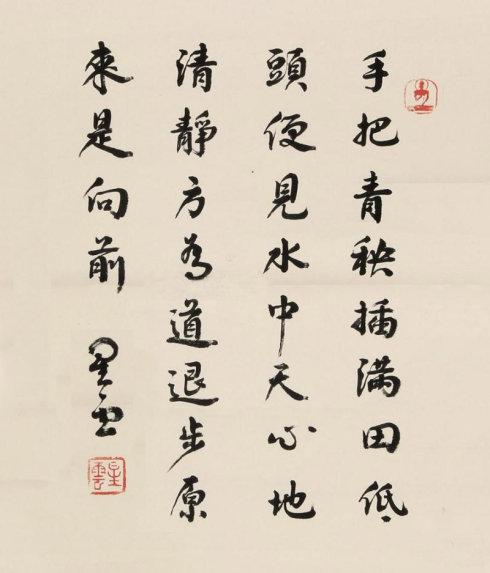 手把青秧插滿田低
頭便見水中天心地
清靜方為道退步原
來是向前
星雲
星雲